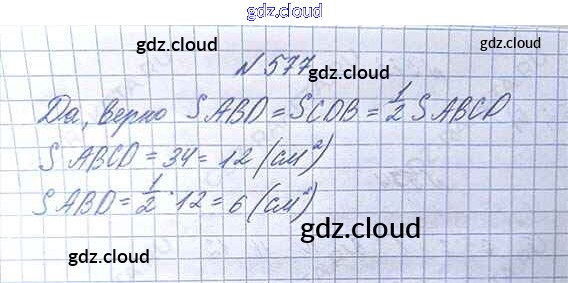 gdz.cloud
gdz.cloud gdz.cloud
N 577
Да, верно SABD = SCDB = 1/2 SABCD
SABCD = 34 = 12 (см²)
SABD = 1/2 · 12 = 6 (см²)
gdz.cloud
gdz.cloud gdz.cloud